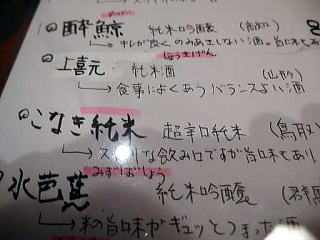 酔鯨 純米吟醸 (高知)
キレが良くのみあきしない酒。旨味も
じょうきげん
上喜元 純米酒 (山形)
食事によくあうバランスよい酒
こなき純米 超辛口純米 (鳥取)
スッキリな飲み口ですが旨味もあり
みずばしょう
水芭蕉 純米吟醸 (群馬
米の旨味がギュッとつまった酒